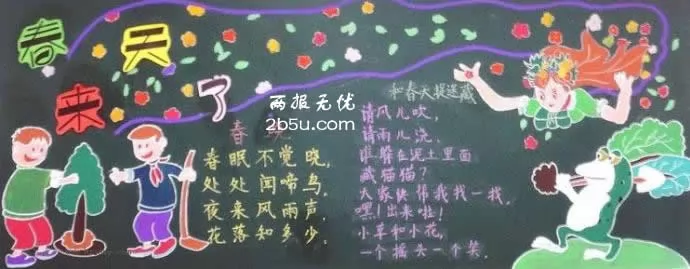 春天
来了
两报无优
2b5u.com
春
春眠不觉晓,
处处闻啼鸟。
夜来风雨声,
花落知多少。
和春天捉迷藏
请风儿吹,
请雨儿浇,
谁躲在泥土里面
藏猫猫?
大家快帮我找一找,
嘿!出来啦!
小草和小花,
一个摇头一个笑。